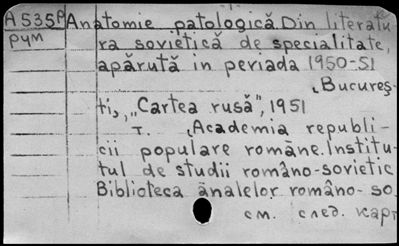 A 535 P Anatomie patologică. Din literatu-
рум ra sovietică de specialitate,
apărută in perioada 1950-51
București,
„Cartea rusă”, 1951
T. Academia republi-
cii populare române. Institu-
tul de studii româno-sovietic
Biblioteca analelor româno-so
см. след. карт